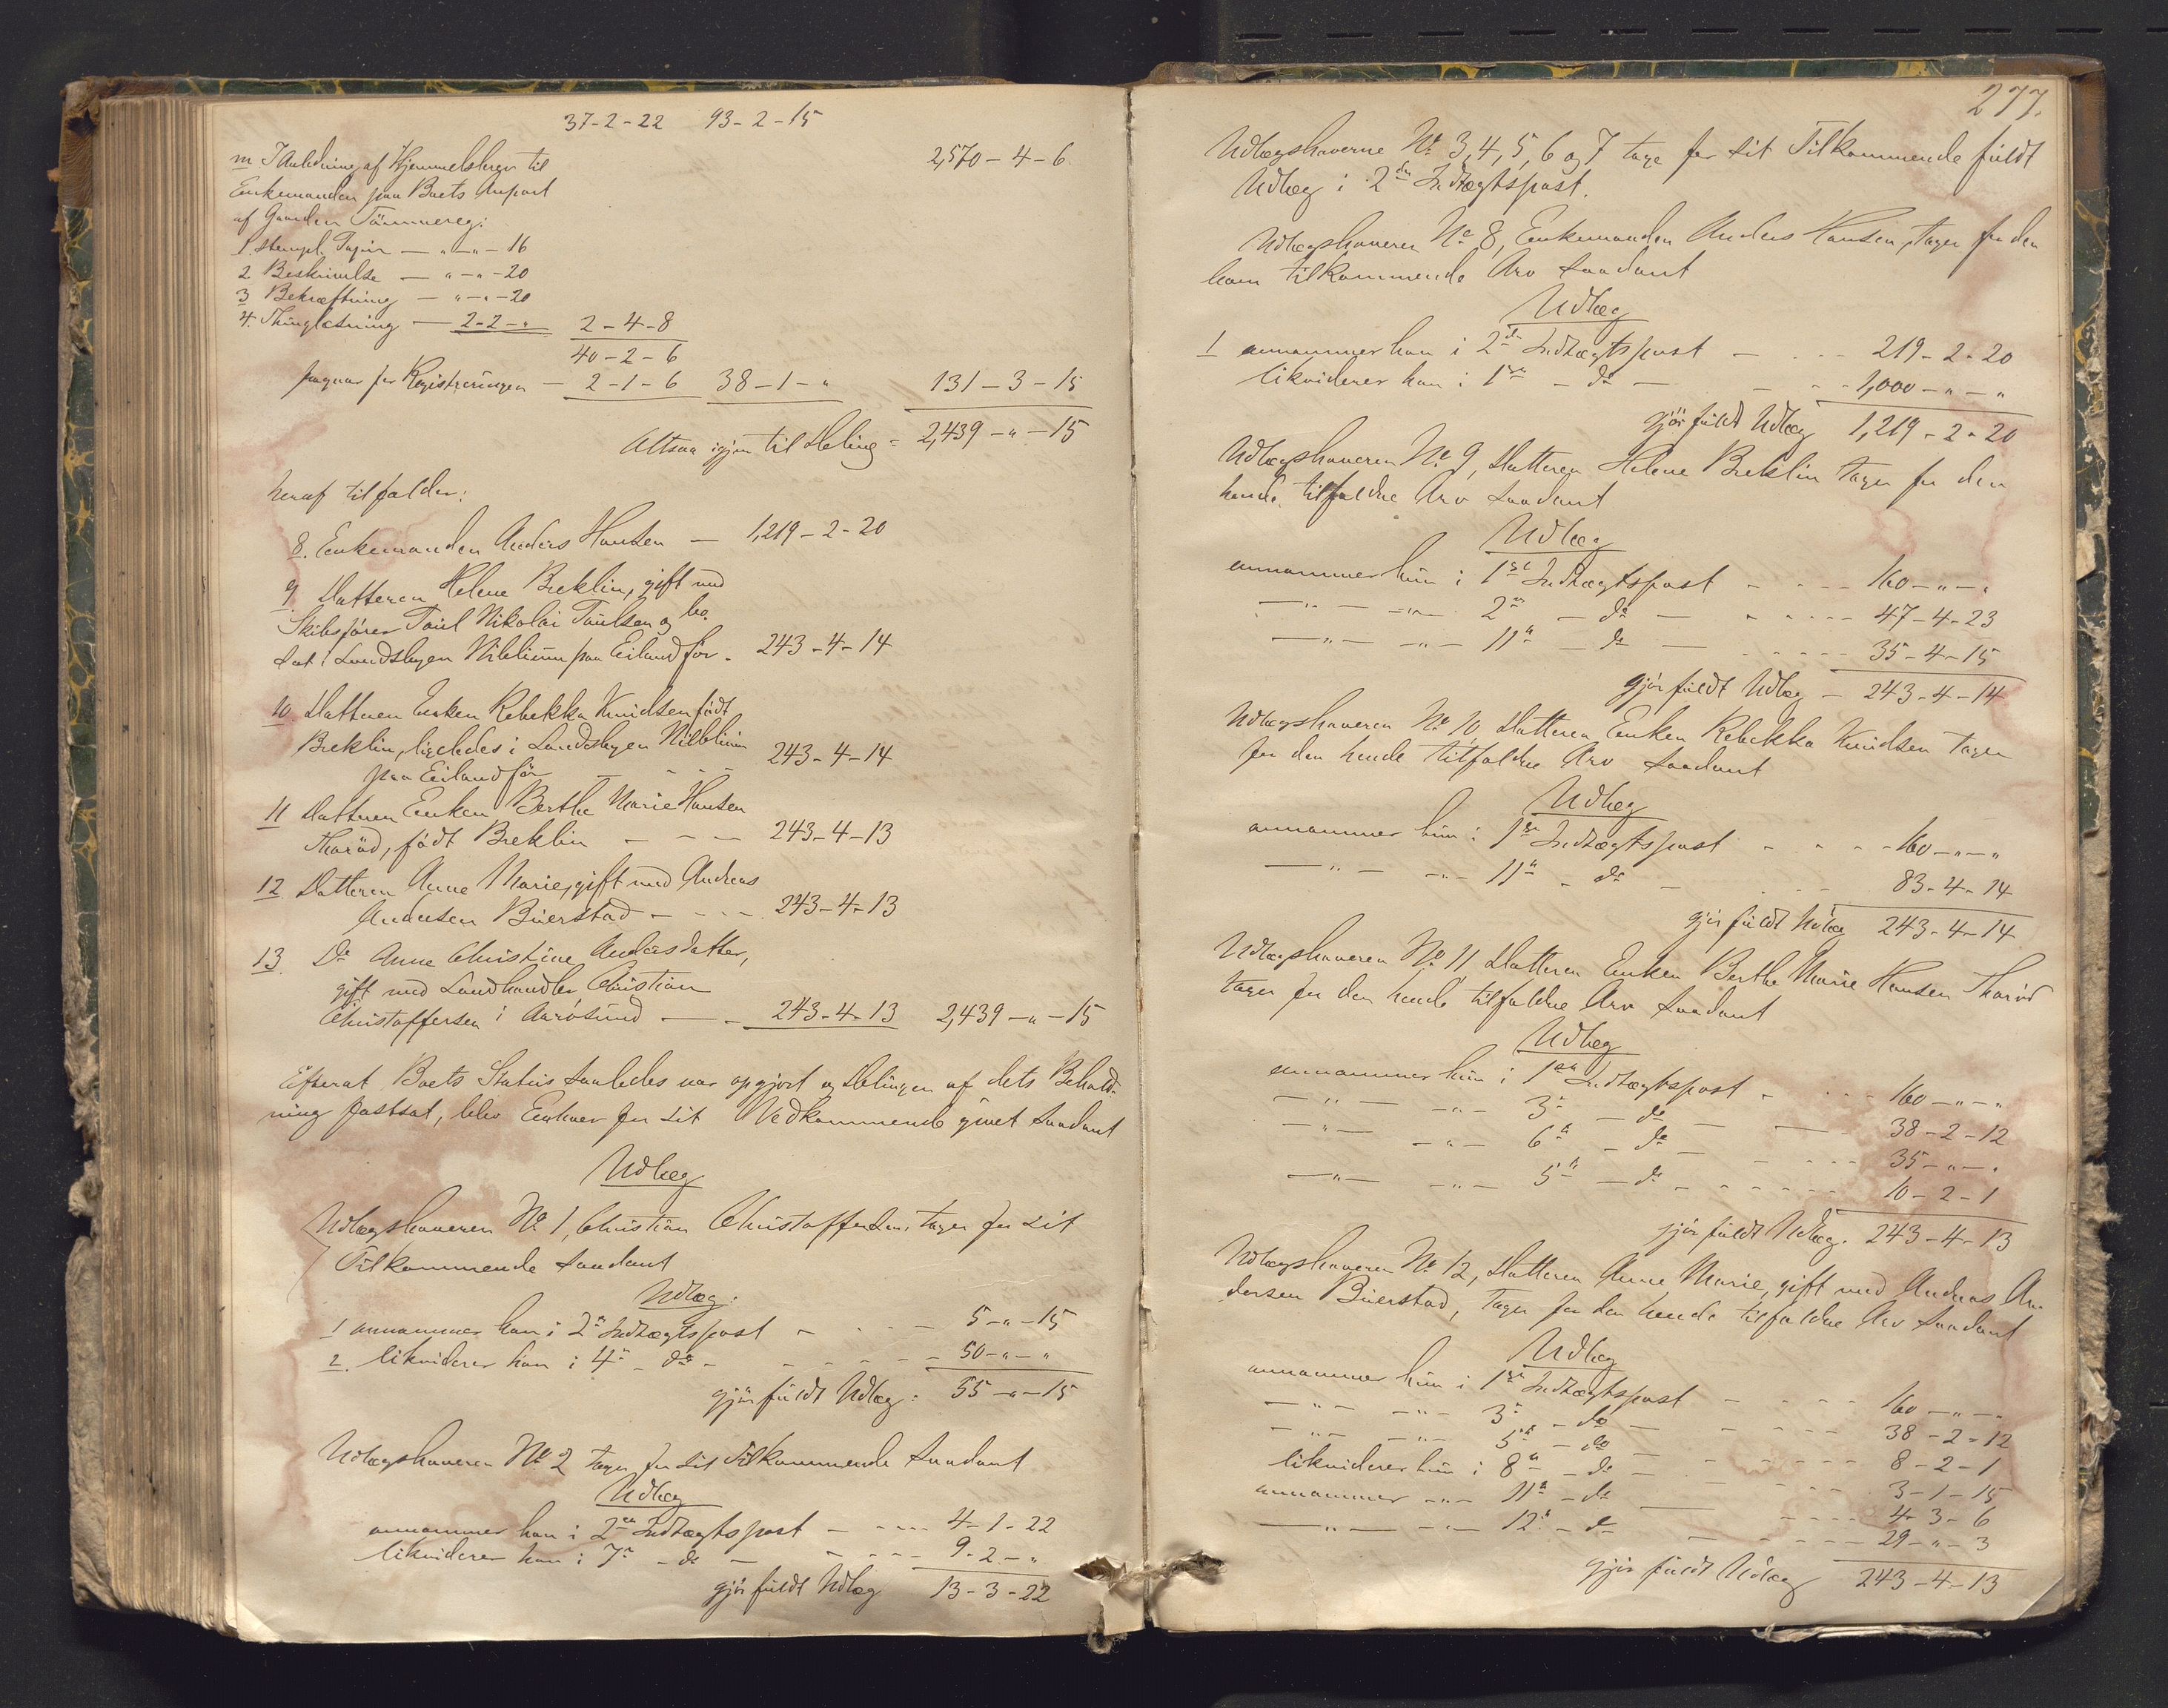 37-2-22 93-2-15
m I Anledning af Hjemmelsbrev til 2,570-4-6
Enkemanden paa Boets Anpart
af Gaarden Tömmereg:
1. stempl. Papir — „ - „ - 16
2 Beskrivelse — „ - „ - 20
3 Bekræftning — „ - „ - 20
4. Thinglæsning — 2-2-„ 2-4-8
40-2-6
for Registreringen — 2-1-6 38-1-„ 131-3-15
Altsaa igjen til Deling = 2,439-„-15
heraf tilfalder:
8. Enkemanden Anders Hansen — 1,219-2-20
9. Datteren Helene Breklin, gift med
Skibsfører Paul Nikolai Paulsen og bo-
sat i Landsbyen Niblium paa Eiland för - 243-4-14
10. Datteren Enken Rebekka Knudsen født
Breklin, ligeledes i Landsbyen Niblium
paa Eiland för - - - - 243-4-14
11 Datteren Enken Berthe Marie Hansen
Tharöd, født Breklin - - - 243-4-13
12 Datteren Anne Marie, gift med Andreas
Andersen Buerstad - - - 243-4-13
13. Do Anne Christine Andersdatter,
gift med Landhandler Christian
Christoffersen i Aarösund — - 243-4-13 2,439-„-15
Efterat Boets Status saaledes var opgjort og Delingen af dets Behold-
ning fastsat, blev Enhver for sit Vedkommende givet saadant
Udlæg
Udlægshaveren No 1, Christian Christoffersen, tager for sit
Tilkommende saadant
Udlæg:
1 annammer han i 2n Indtægtspost - - - 5-„-15
2. likviderer han i 4n - do - - - - - 50-„-„
gjör fuldt Udlæg: 55-„-15
Udlægshaveren No 2 tager for sit Tilkommende saadant
Udlæg
annammer han i 2den Indtægtspost - - - - 4-1-22
likviderer han i 7n - do - - - - 9-2-„
gjör fuldt Udlæg 13-3-22
277.
Udlægshaverne No 3, 4, 5, 6 og 7 tage for sit Tilkommende fuldt
Udlæg i 2den Indtægtspost.
Udlægshaveren No 8, Enkemanden Anders Hansen, tager for den
ham tilkommende Arv saadant
Udlæg
1 annammer han i 2den Indtægtspost - - - - 219-2-20
likviderer han i 1ste - do - - - - 1,000-„-„
gjör fuldt Udlæg 1,219-2-20
Udlægshaveren No 9, Datteren Helene Breklin tager for den
hende tilfaldne Arv saadant
Udlæg
annammer hun i 1ste Indtægtspost - - - - 160-„-„
—„— -„- 2n - do - - - - - 47-4-23
—„— -„- 11n - do - - - - - 35-4-15
gjör fuldt Udlæg - 243-4-14
Udlægshaveren No 10, Datteren Enken Rebekka Knudsen tager
for den hende tilfaldne Arv saadant
Udlæg
annammer hun i 1ste Indtægtspost - - - - 160-„-„
—„— -„- 11n - do - - - - 83-4-14
gjör fuldt Udlæg 243-4-14
Udlægshaveren No 11 Datteren Enken Berthe Marie Hansen Tharöd
tager for den hende tilfaldne Arv saadant
Udlæg
annammer hun i 1ste Indtægtspost - - - - 160-„-„
—„— -„- 3n - do - — - 38-2-12
—„— -„- 6n - do - - - - - 35-„-„
—„— -„- 5n - do - - - - - 10-2-1
gjör fuldt Udlæg. 243-4-13
Udlægshaveren No 12, Datteren Anne Marie, gift med Andreas An-
dersen Buerstad, tager for den hende tilfaldne Arv saadant
Udlæg
annammer hun i 1ste Indtægtspost - - - - 160-„-„
—„— -„- 3n - do - - - - - 38-2-12
—„— -„- 5n - do - - - - - 8-2-1
likviderer hun i 8n - do - - - - 3-1-15
annammer -„- 11n - do — - - - - 4-3-6
—„— -„- 12n - do - - - - - 29-„-3
gjör fuldt Udlæg 243-4-13